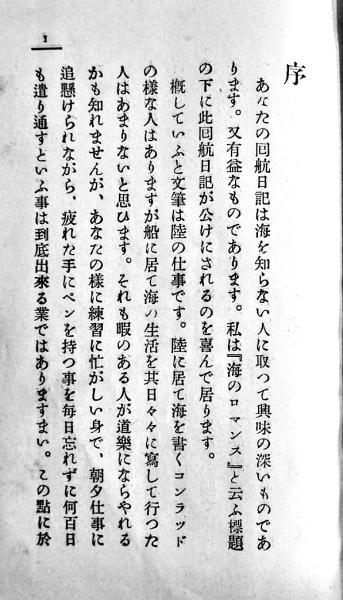 序
あなたの囘航日記は海を知らない人に取つて興味の深いものであ
ります。又有益なものであります。私は『海のロマンス』と云ふ標題
の下に此囘航日記が公けにされるのを喜んで居ります。
概していふと文筆は陸の仕事です。陸に居て海を書くコンラッド
の様な人はありますが船に居て海の生活を其日々々に寫して行つた
人はあまりないと思ひます。それも暇のある人が道樂にならやれる
かも知れませんが、あなたの様に練習に忙がしい身で、朝夕仕事に
追懸けられながら、疲れた手にペンを持つ事を毎日忘れずに何百日
も遣り通すといふ事は到底出來る業ではありますまい。この點に於
1